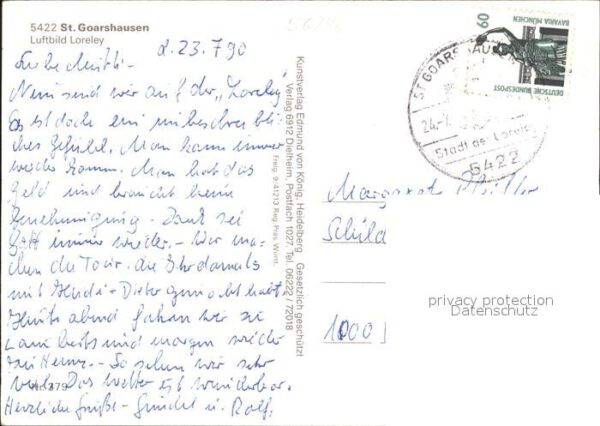 5422 St. Goarshausen
Luftbild Loreley
d. 23. 7 90
Liebe
Nun sind wir auf der „Loreley"
Es ist doch ein unbeschreibli-
ches Gefühl. Man kann immer
wieder kommen. Man hat das
Geld und braucht keine
Genehmigung - Dank sei
Gott immer wieder. - Wir ma-
chen die Tour, die Ihr damals
mit Heidi - Dieter gemacht habt
Heute abend fahren wir zu
und morgen wieder
- So sehen wir sehr
viel. Das Wetter ist wunderbar.
Herzliche Grüße - u. Rolf.
Nr. 379
Kunstverlag Edmund von König, Heidelberg Gesetzlich geschützt
Verlag 6912 Dielheim, Postfach 1027, Tel. 06222 / 72018
Freig. 9/41213 Reg. Präs. Württ.
60
BAVARIA MÜNCHEN
DEUTSCHE BUNDESPOST
ST GOARSHAUSEN
24.-7.
Stadt der Loreley
5422
Margaret
Schild
1000
privacy protection
Datenschutz